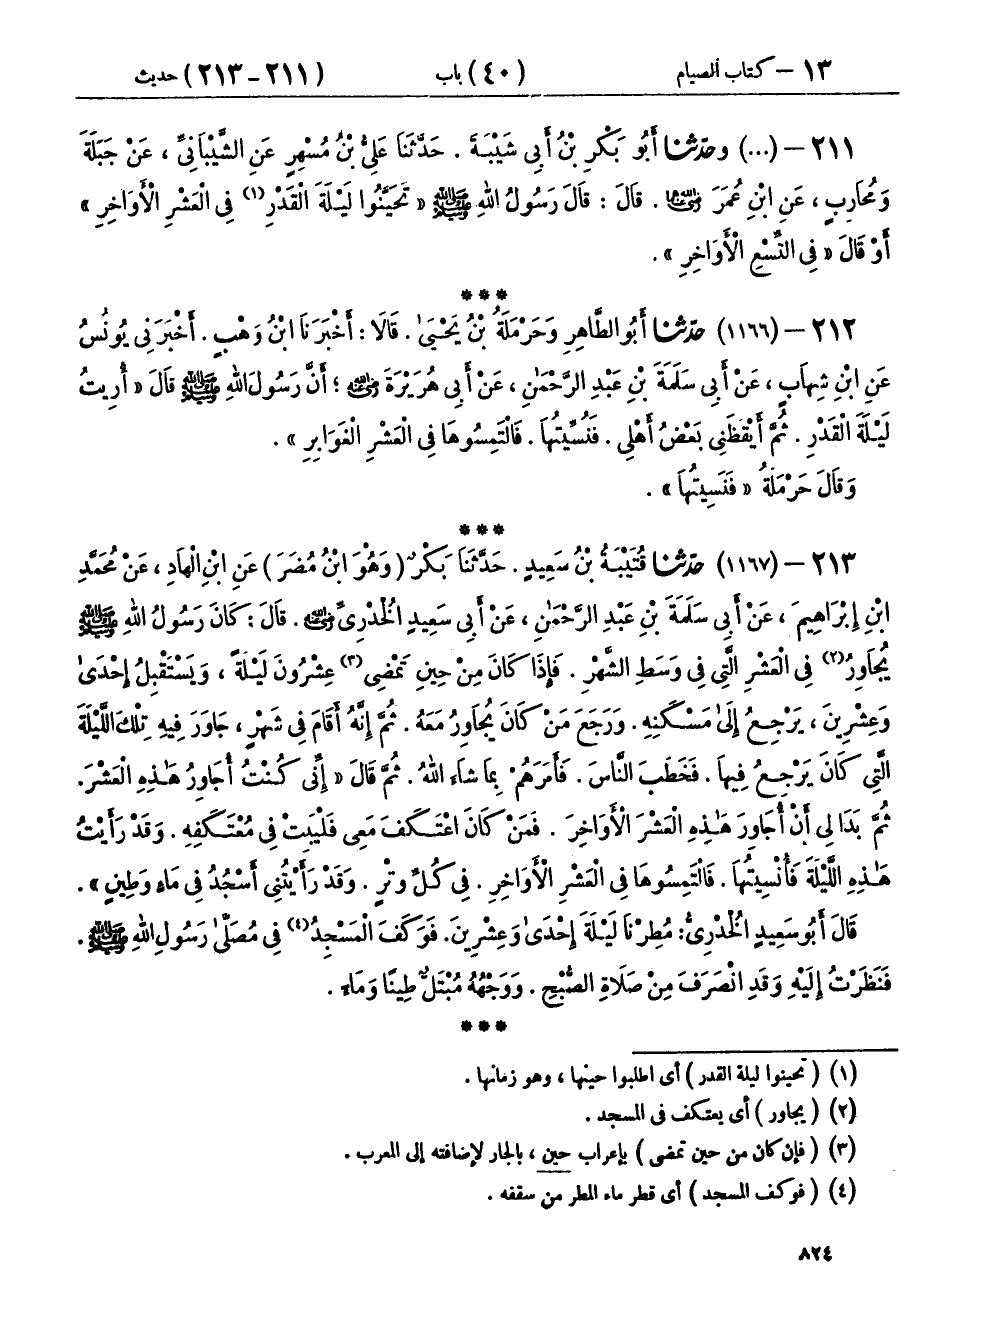 ١٣ – كتاب الصيام (٤٠) باب (٢١١ – ٢١٣) حديث
٢١١ – (...) وحَدَّثَنَا أَبُو بَكْرِ بْنُ أَبِي شَيْبَةَ . حَدَّثَنَا عَلِيُّ بْنُ مُسْهِرٍ عَنِ الشَّيْبَانِيِّ ، عَنْ جَبَلَةَ
وَمُحَارِبٍ ، عَنِ ابْنِ عُمَرَ رضي الله عنهما . قَالَ : قَالَ رَسُولُ اللهِ ﷺ « تَحَيَّنُوا لَيْلَةَ الْقَدْرِ(١) فِي الْعَشْرِ الْأَوَاخِرِ »
أَوْ قَالَ « فِي التِّسْعِ الْأَوَاخِرِ » .
***
٢١٢ – (١١٦٦) حَدَّثَنَا أَبُو الطَّاهِرِ وَحَرْمَلَةُ بْنُ يَحْيَىٰ . قَالَا : أَخْبَرَنَا ابْنُ وَهْبٍ . أَخْبَرَنِي يُونُسُ
عَنِ ابْنِ شِهَابٍ ، عَنْ أَبِي سَلَمَةَ بْنِ عَبْدِ الرَّحْمَٰنِ ، عَنْ أَبِي هُرَيْرَةَ رضي الله عنه ؛ أَنَّ رَسُولَ اللهِ ﷺ قَالَ « أُرِيتُ
لَيْلَةَ الْقَدْرِ . ثُمَّ أَيْقَظَنِي بَعْضُ أَهْلِي . فَنُسِّيتُهَا . فَالْتَمِسُوهَا فِي الْعَشْرِ الْغَوَابِرِ » .
وَقَالَ حَرْمَلَةُ « فَنَسِيتُهَا » .
***
٢١٣ – (١١٦٧) حَدَّثَنَا قُتَيْبَةُ بْنُ سَعِيدٍ . حَدَّثَنَا بَكْرٌ (وَهُوَ ابْنُ مُضَرَ) عَنِ ابْنِ الْهَادِ ، عَنْ مُحَمَّدِ
ابْنِ إِبْرَاهِيمَ ، عَنْ أَبِي سَلَمَةَ بْنِ عَبْدِ الرَّحْمَٰنِ ، عَنْ أَبِي سَعِيدٍ الْخُدْرِيِّ رضي الله عنه . قَالَ : كَانَ رَسُولُ اللهِ ﷺ
يُجَاوِرُ(٢) فِي الْعَشْرِ الَّتِي فِي وَسَطِ الشَّهْرِ . فَإِذَا كَانَ مِنْ حِينِ تَمْضِي(٣) عِشْرُونَ لَيْلَةً ، وَيَسْتَقْبِلُ إِحْدَىٰ
وَعِشْرِينَ ، يَرْجِعُ إِلَىٰ مَسْكَنِهِ . وَرَجَعَ مَنْ كَانَ يُجَاوِرُ مَعَهُ . ثُمَّ إِنَّهُ أَقَامَ فِي شَهْرٍ ، جَاوَرَ فِيهِ تِلْكَ اللَّيْلَةَ
الَّتِي كَانَ يَرْجِعُ فِيهَا . فَخَطَبَ النَّاسَ . فَأَمَرَهُمْ بِمَا شَاءَ اللهُ . ثُمَّ قَالَ « إِنِّي كُنْتُ أُجَاوِرُ هَٰذِهِ الْعَشْرَ .
ثُمَّ بَدَا لِي أَنْ أُجَاوِرَ هَٰذِهِ الْعَشْرَ الْأَوَاخِرَ . فَمَنْ كَانَ اعْتَكَفَ مَعِي فَلْيَبِتْ فِي مُعْتَكَفِهِ . وَقَدْ رَأَيْتُ
هَٰذِهِ اللَّيْلَةَ فَأُنْسِيتُهَا . فَالْتَمِسُوهَا فِي الْعَشْرِ الْأَوَاخِرِ . فِي كُلِّ وِتْرٍ . وَقَدْ رَأَيْتُنِي أَسْجُدُ فِي مَاءٍ وَطِينٍ » .
قَالَ أَبُو سَعِيدٍ الْخُدْرِيُّ : مُطِرْنَا لَيْلَةَ إِحْدَىٰ وَعِشْرِينَ . فَوَكَفَ الْمَسْجِدُ(٤) فِي مُصَلَّىٰ رَسُولِ اللهِ ﷺ .
فَنَظَرْتُ إِلَيْهِ وَقَدِ انْصَرَفَ مِنْ صَلَاةِ الصُّبْحِ . وَوَجْهُهُ مُبْتَلٌّ طِينًا وَمَاءً .
***
(١) (تحينوا ليلة القدر) أى اطلبوا حينها ، وهو زمانها .
(٢) (يجاور) أى يعتكف فى المسجد .
(٣) (فإن كان من حين تمضى) بإعراب حين ، بالجار لإضافته إلى المعرب .
(٤) (فوكف المسجد) أى قطر ماء المطر من سقفه .
٨٢٤